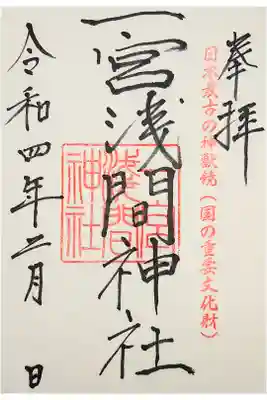 奉拝
日本最古の神獣鏡(国の重要文化財)
一宮浅間神社
一宮浅間神社
令和四年二月 日